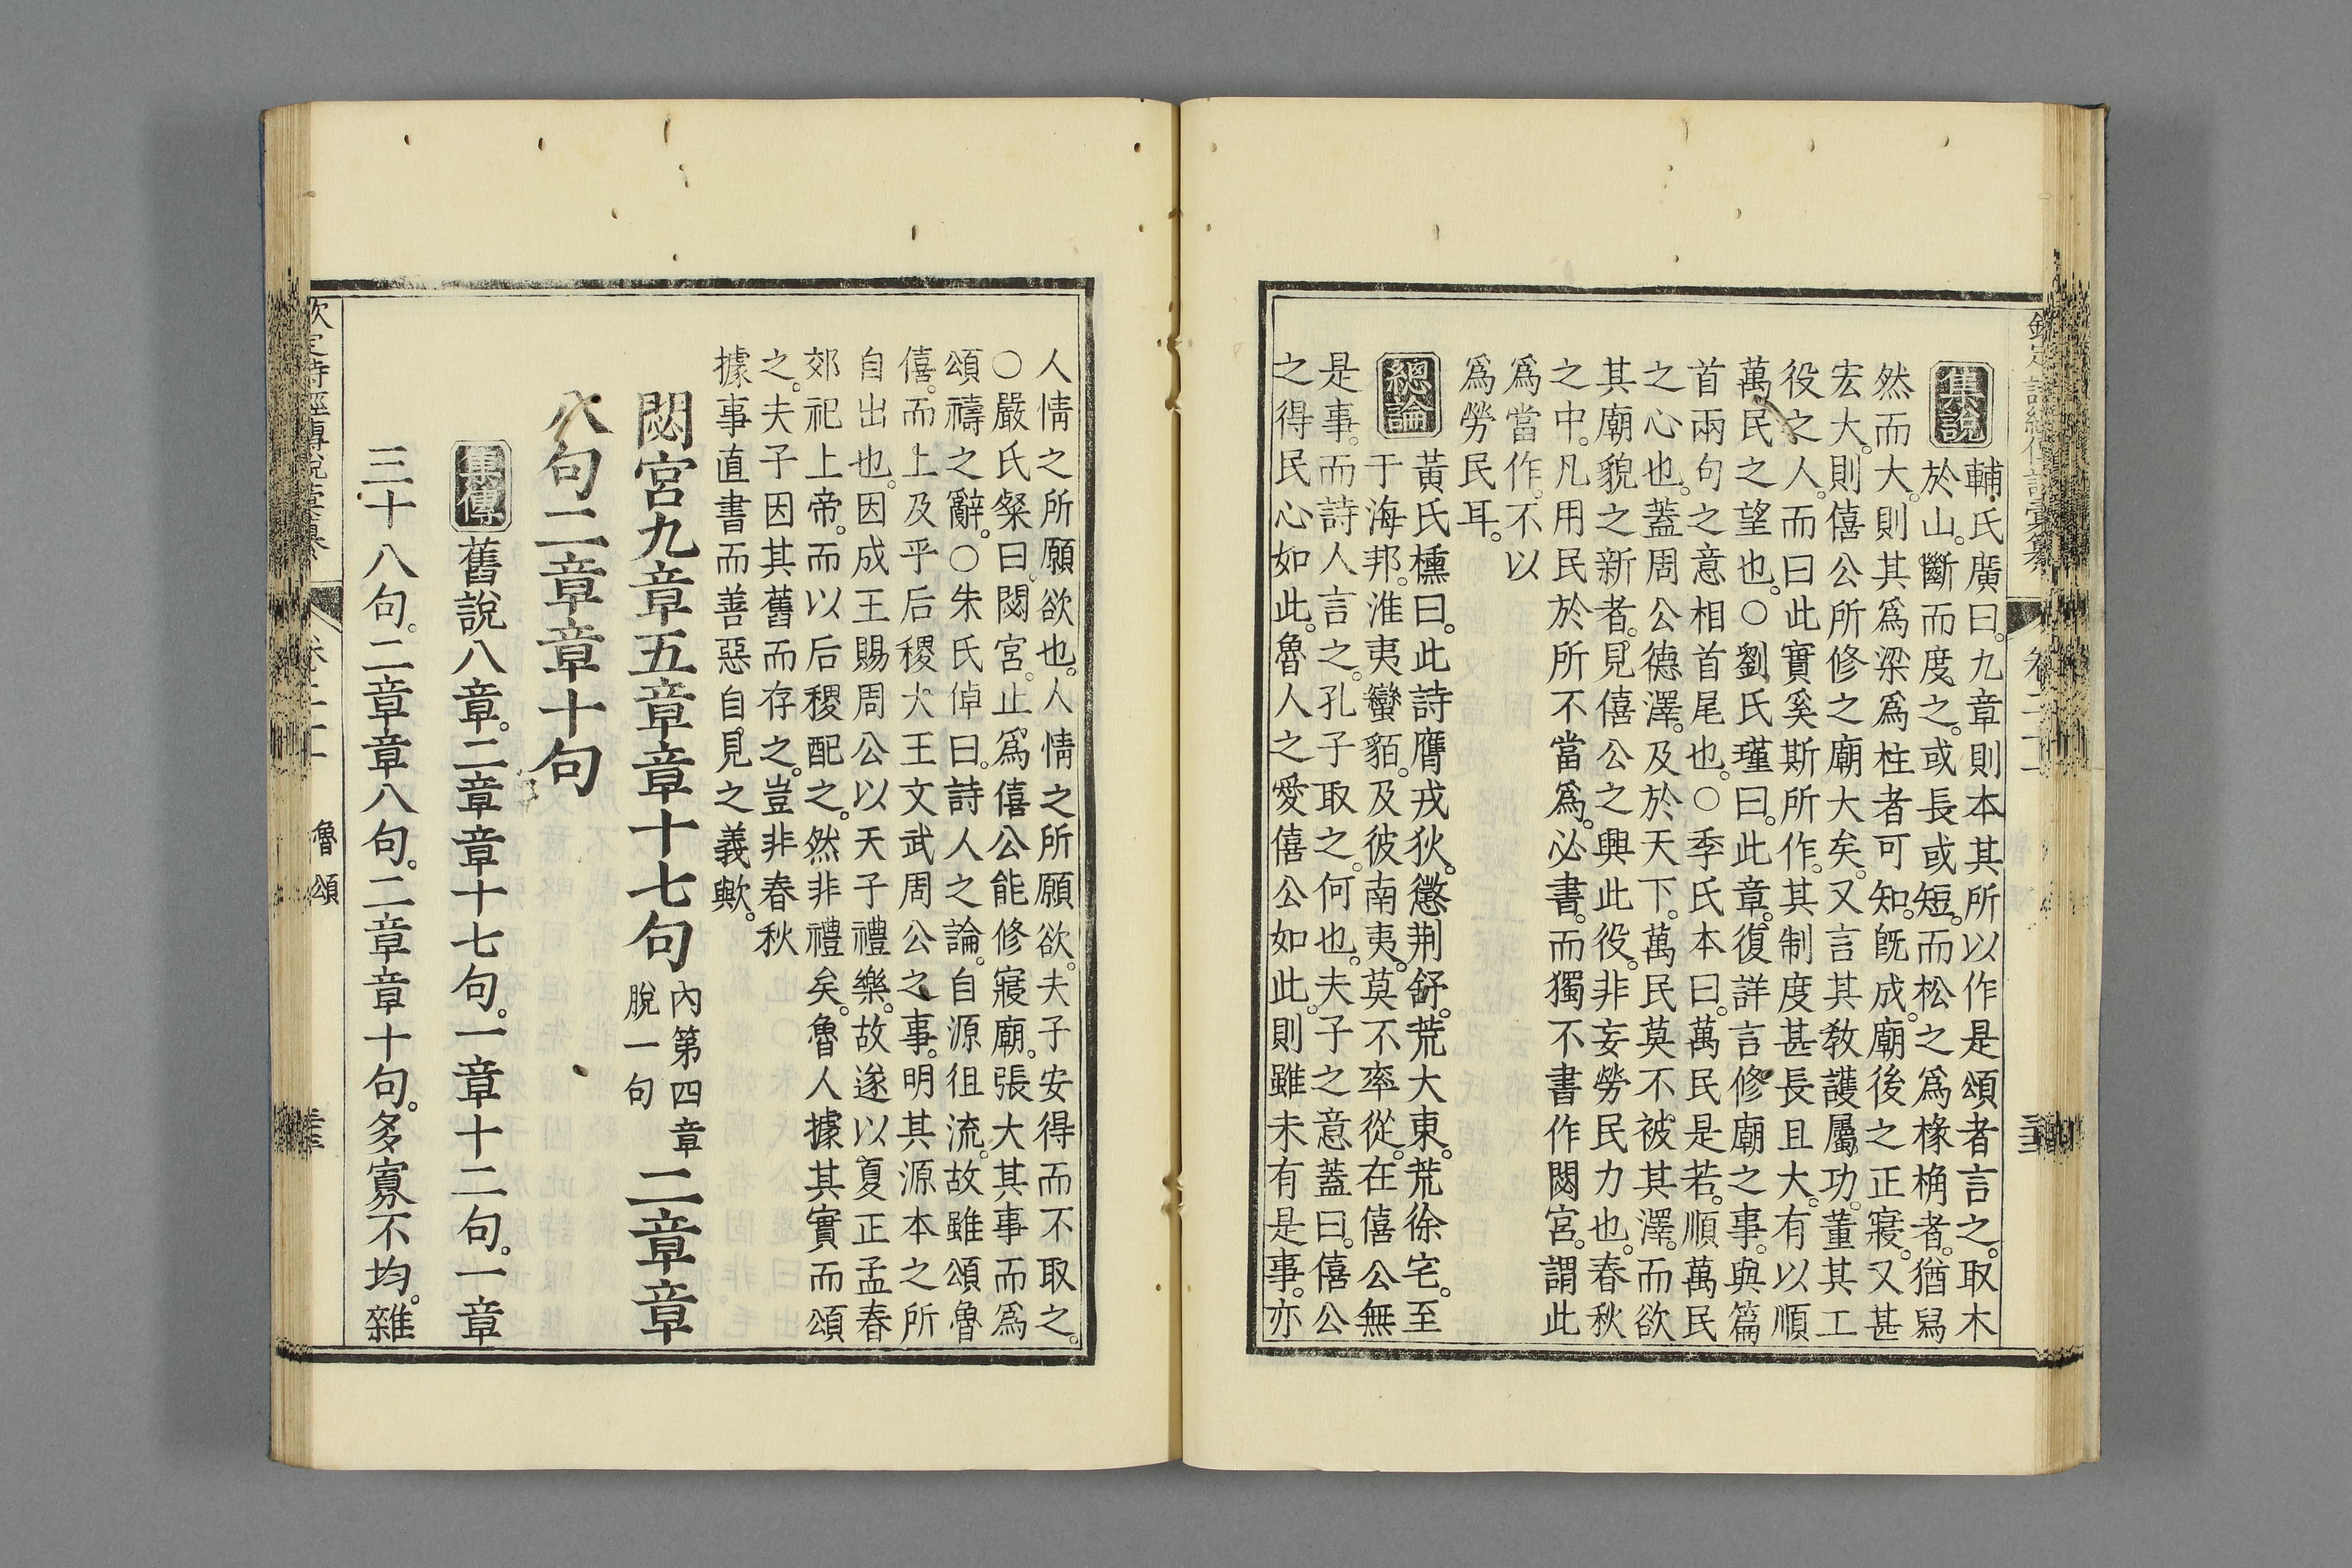 欽定詩經傳說彙纂 卷二十一
集說 輔氏廣曰。九章則本其所以作是頌者言之。取木
於山。斷而度之。或長或短。而松之爲椽桷者。猶舄
然而大。則其爲梁爲柱者可知。旣成。廟後之正寢。又甚
宏大。則僖公所修之廟大矣。又言其敎護屬功。董其工
役之人。而曰此實奚斯所作。其制度甚長且大。有以順
萬民之望也。○劉氏瑾曰。此章。復詳言修廟之事。與篇
首兩句之意相首尾也。○季氏本曰。萬民是若。順萬民
之心也。蓋周公德澤。及於天下。萬民莫不被其澤。而欲
其廟貌之新者。見僖公之興此役。非妄勞民力也。春秋
之中。凡用民於所不當爲。必書。而獨不書作閟宮。謂此
爲當作。不以
爲勞民耳。
總論 黃氏櫄曰。此詩膺戎狄。懲荆舒。荒大東。荒徐宅。至
于海邦。淮夷蠻貊。及彼南夷。莫不率從。在僖公無
是事。而詩人言之。孔子取之。何也。夫子之意蓋曰。僖公
之得民心如此。魯人之愛僖公如此。則雖未有是事。亦
人情之所願欲也。人情之所願欲。夫子安得而不取之。
○嚴氏粲曰。閟宮。止爲僖公能修寢廟。張大其事而爲
頌禱之辭。○朱氏倬曰。詩人之論。自源徂流。故雖頌魯
僖。而上及乎后稷大王文武周公之事。明其源本之所
自出也。因成王賜周公以天子禮樂。故遂以夏正孟春
郊祀上帝。而以后稷配之。然非禮矣。魯人據其實而頌
之。夫子因其舊而存之。豈非春秋
據事直書而善惡自見之義歟。
閟宮九章五章章十七句 內第四章脫一句 二章章
八句二章章十句
集傳 舊說八章。二章章十七句。一章十二句。一章
三十八句。二章章八句。二章章十句。多寡不均。雜
欽定詩經傳說彙纂 卷二十一 魯頌